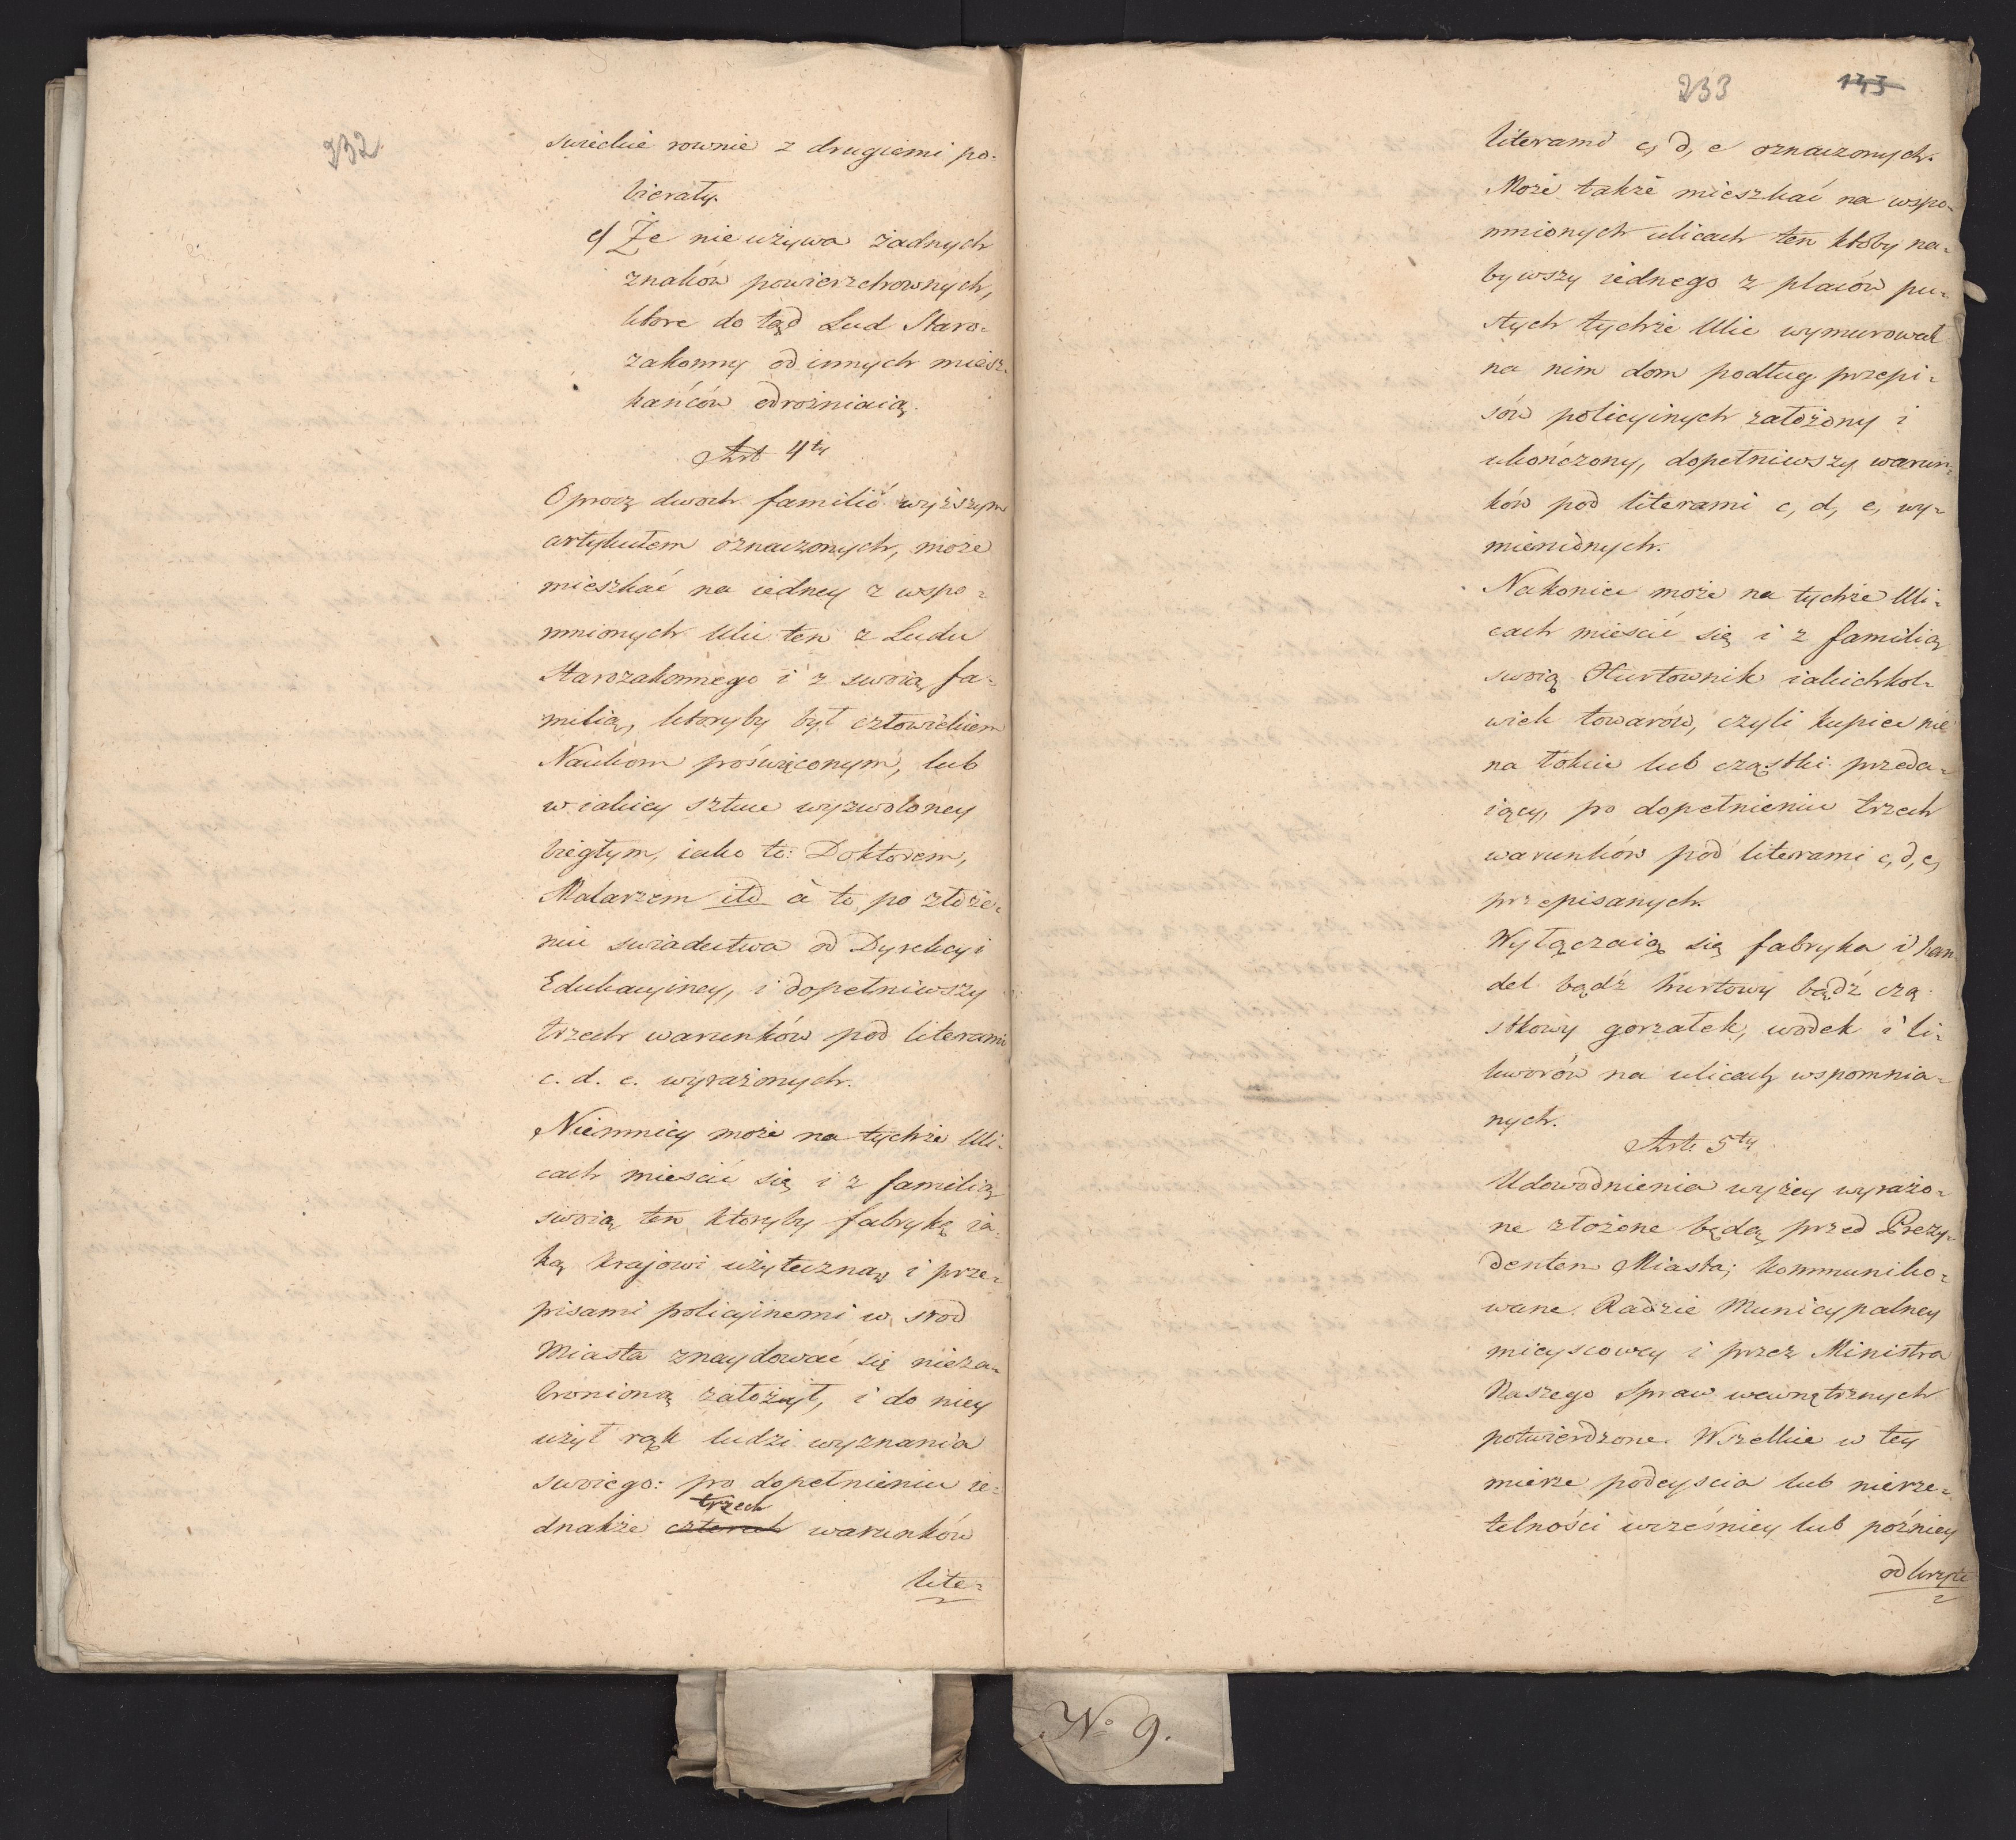 232
swieckie rownie z drugiemi po-
bierały.
e/ Że nie używa żadnych
znaków powierzchownych,
ktore do tąd Lud Staro-
zakonny od innych miesz-
kańców odrożniaią.
Art 4ty
Oprocz dwoch familii wyższym
artykułem oznaczonych, może
mieszkać na iedney z wspo-
mnionych Ulic ten z Ludu
Starozakonnego i z swoią fa-
milią, ktoryby był człowiekiem
Naukom poświęconym, lub
w iakiey sztuce wyzwoloney
biegłym, iako to: Doktorem,
Malarzem itd à to po złoże-
niu swiadectwa od Dyrekcyi
Edukacyiney, i dopełniwszy
trzech warunków pod literami
c. d. e. wyrażonych.
Niemniey może na tychże Uli-
cach mieścić się i z familią
swoią ten ktoryby fabrykę ia-
ką krajowi użyteczną i prze-
pisami policyinemi w srod
Miasta znaydować się nieza-
bronioną założył, i do niey
użył rąk ludzi wyznania
swoiego: po dopełnieniu ie-
trzech
dnakże czterech warunków
lite-
233 143
literami c, d, e oznaczonych.
Może także mieszkać na wspo-
mnionych ulicach ten ktoby na-
bywszy iednego z placów pu-
stych tychże Ulic wymurował
na nim dom podług przepi-
sów policyinych założony i
ukończony, dopełniwszy warun-
ków pod literami c, d, e, wy-
mienionych.
Nakoniec może na tychże Uli-
cach mieścić się i z familią
swoią Hurtownik iakichkol-
wiek towarów, czyli kupiec nie
na łokcie lub cząstki przeda-
iący, po dopełnieniu trzech
warunków pod literami c, d, e,
przepisanych.
Wyłączaią się fabryka i han-
del bądź hurtowy bądź czą-
stkowy gorzałek, wodek i li-
kworów na ulicach wspomnia-
nych.
Art 5ty
Udowodnienia wyżey wyrażo-
ne złożone będą przed Prezy-
dentem Miasta; kommuniko-
wane Radzie Municypalney
mieyscowey i przez Ministra
Naszego Spraw wewnętrznych
potwierdzone. Wszelkie w tey
mierze podeyscia lub nierze-
telności wcześniey lub poźniey
odkryte
No 9.